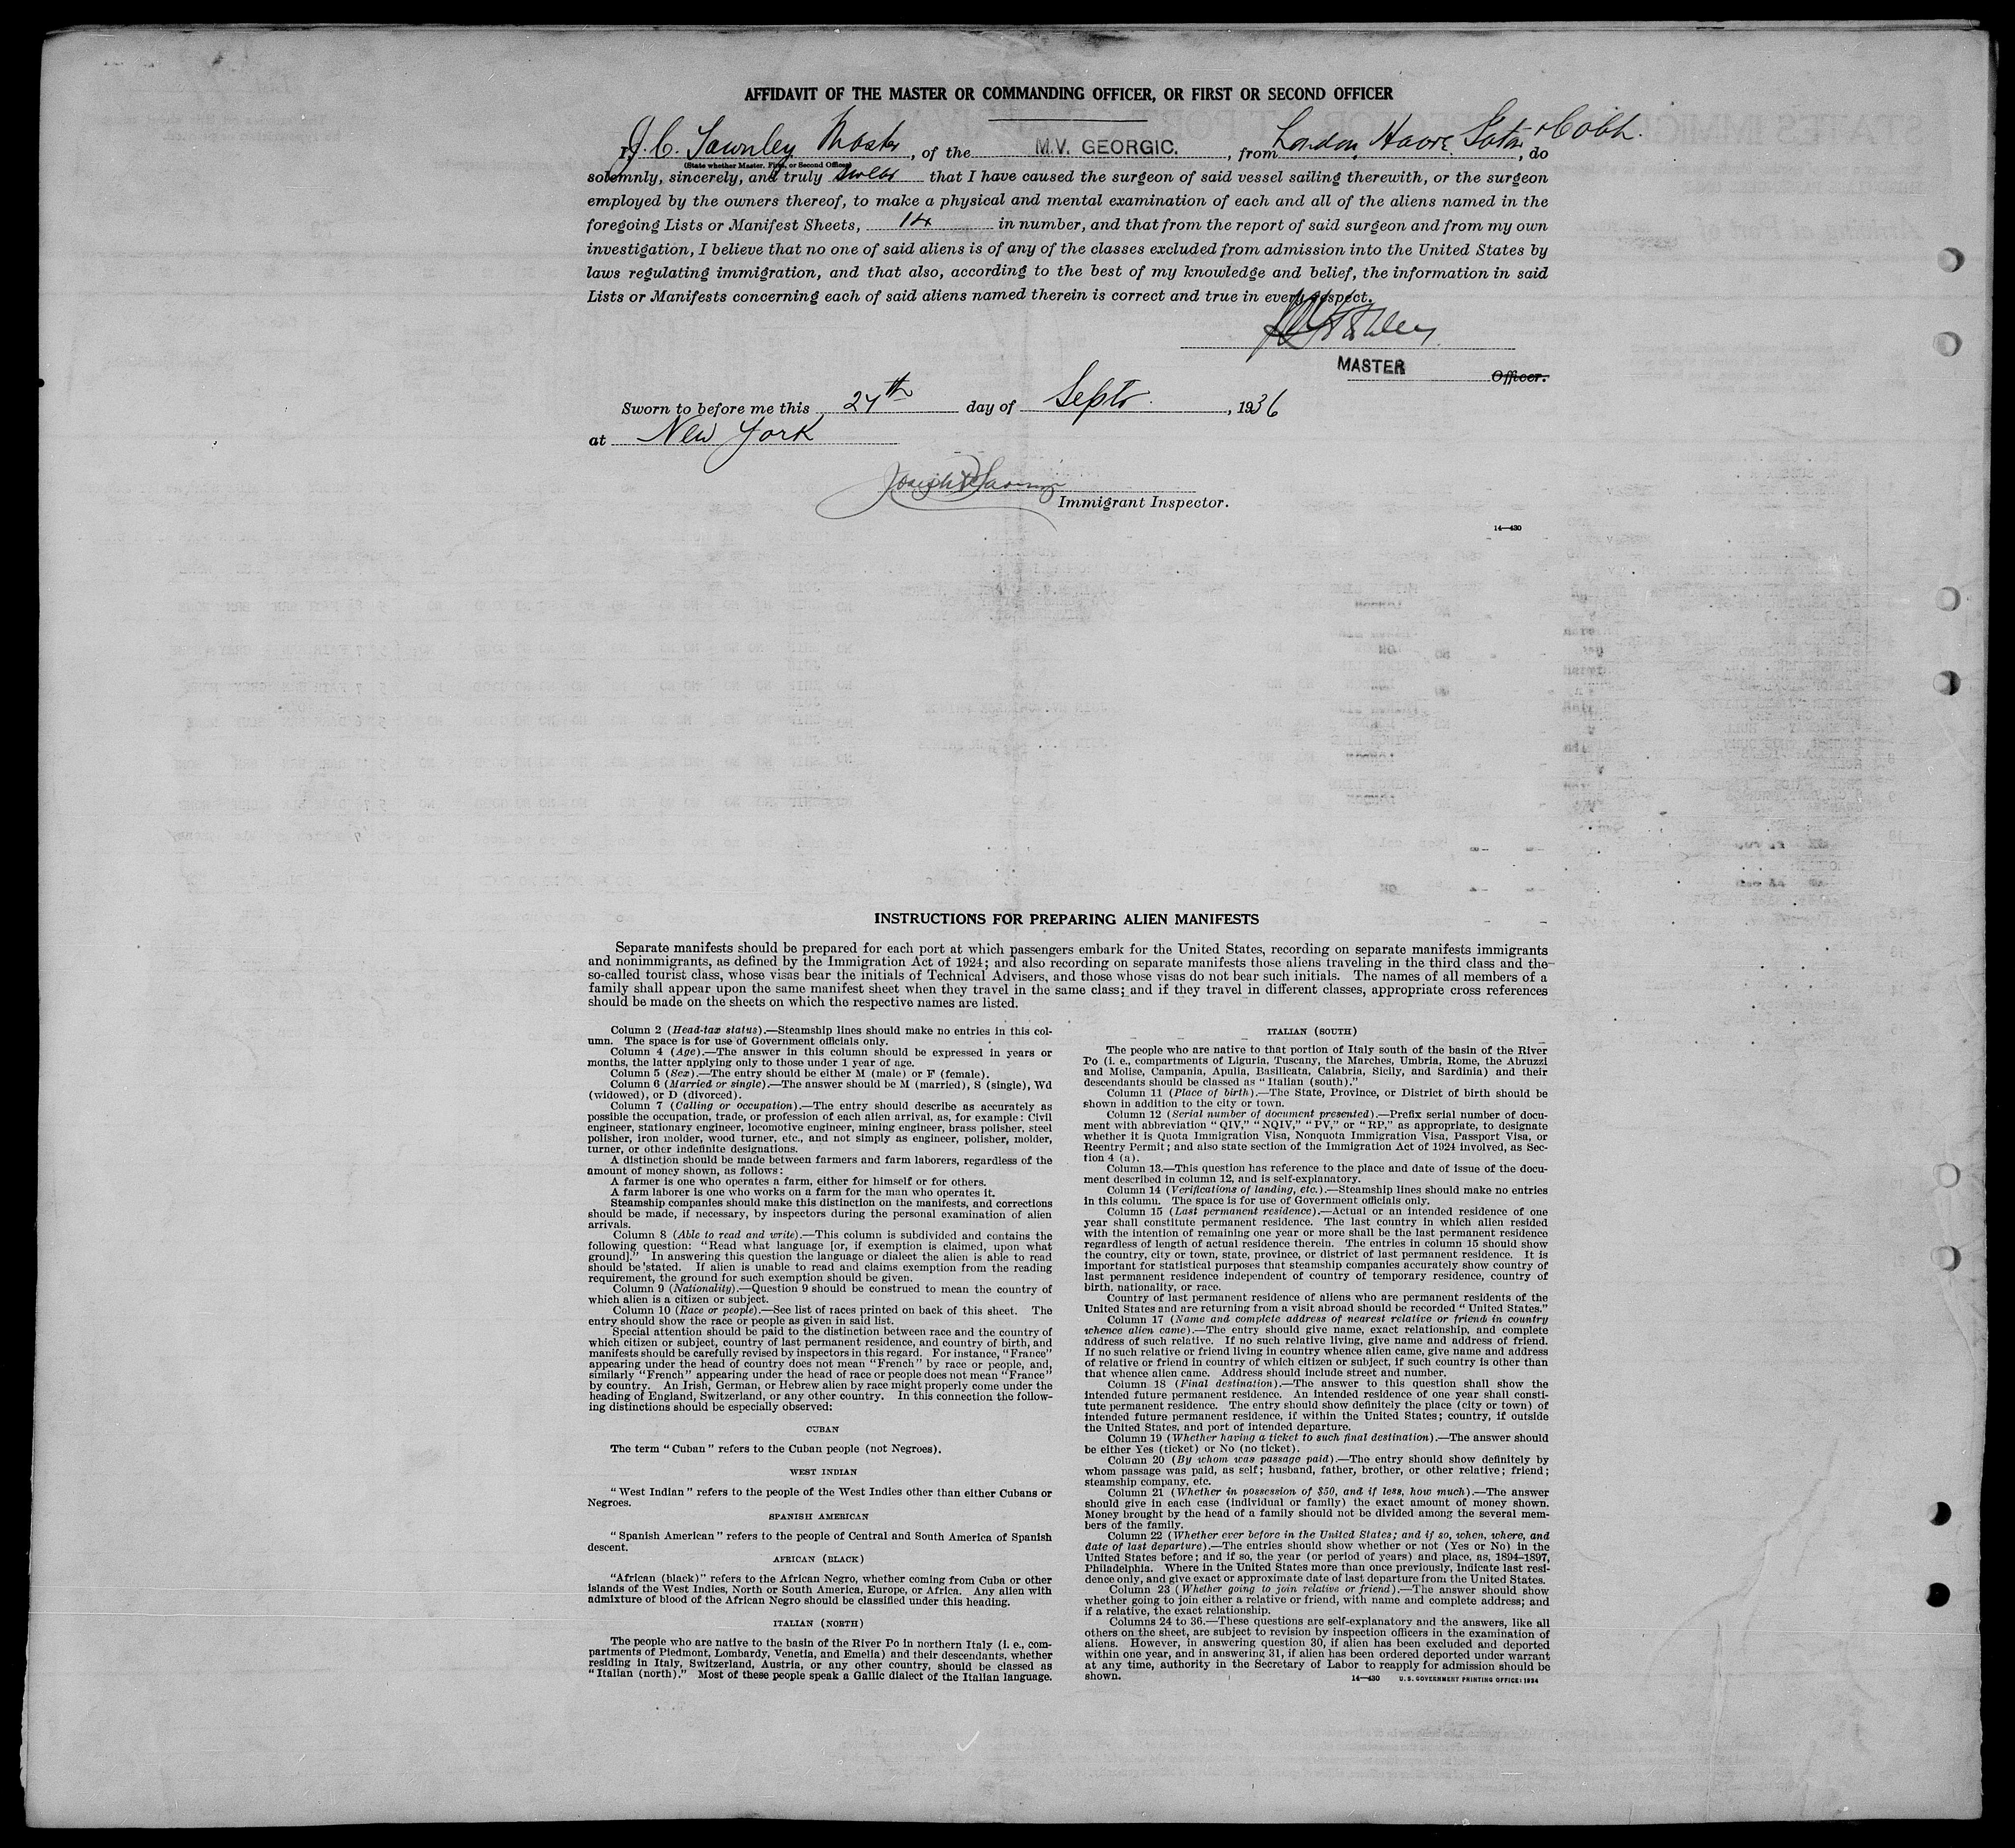 AFFIDAVIT OF THE MASTER OR COMMANDING OFFICER, OR FIRST OR SECOND OFFICER
I, J. C. Townley Master, of the M.V. GEORGIC., from London, Havre. Soton &Cobh., do
(State whether Master, First, or Second Officer)
solemnly, sincerely, and truly swear that I have caused the surgeon of said vessel sailing therewith, or the surgeon
employed by the owners thereof, to make a physical and mental examination of each and all of the aliens named in the
foregoing Lists or Manifest Sheets, 14 in number, and that from the report of said surgeon and from my own
investigation, I believe that no one of said aliens is of any of the classes excluded from admission into the United States by
laws regulating immigration, and that also, according to the best of my knowledge and belief, the information in said
Lists or Manifests concerning each of said aliens named therein is correct and true in every respect.
MASTER Officer.
Sworn to before me this 27th day of Septr., 1936
at New York
Joseph
Immigrant Inspector.
14—430
INSTRUCTIONS FOR PREPARING ALIEN MANIFESTS
Separate manifests should be prepared for each port at which passengers embark for the United States, recording on separate manifests immigrants
and nonimmigrants, as defined by the Immigration Act of 1924; and also recording on separate manifests those aliens traveling in the third class and the
so-called tourist class, whose visas bear the initials of Technical Advisers, and those whose visas do not bear such initials. The names of all members of a
family shall appear upon the same manifest sheet when they travel in the same class; and if they travel in different classes, appropriate cross references
should be made on the sheets on which the respective names are listed.
Column 2 (Head-tax status).—Steamship lines should make no entries in this col-
umn. The space is for use of Government officials only.
Column 4 (Age).—The answer in this column should be expressed in years or
months, the latter applying only to those under 1 year of age.
Column 5 (Sex).—The entry should be either M (male) or F (female).
Column 6 (Married or single).—The answer should be M (married), S (single), Wd
(widowed), or D (divorced).
Column 7 (Calling or occupation).—The entry should describe as accurately as
possible the occupation, trade, or profession of each alien arrival, as, for example: Civil
engineer, stationary engineer, locomotive engineer, mining engineer, brass polisher, steel
polisher, iron molder, wood turner, etc., and not simply as engineer, polisher, molder,
turner, or other indefinite designations.
A distinction should be made between farmers and farm laborers, regardless of the
amount of money shown, as follows:
A farmer is one who operates a farm, either for himself or for others.
A farm laborer is one who works on a farm for the man who operates it.
Steamship companies should make this distinction on the manifests, and corrections
should be made, if necessary, by inspectors during the personal examination of alien
arrivals.
Column 8 (Able to read and write).—This column is subdivided and contains the
following question: "Read what language [or, if exemption is claimed, upon what
ground]." In answering this question the language or dialect the alien is able to read
should be stated. If alien is unable to read and claims exemption from the reading
requirement, the ground for such exemption should be given.
Column 9 (Nationality).—Question 9 should be construed to mean the country of
which alien is a citizen or subject.
Column 10 (Race or people).—See list of races printed on back of this sheet. The
entry should show the race or people as given in said list.
Special attention should be paid to the distinction between race and the country of
which citizen or subject, country of last permanent residence, and country of birth, and
manifests should be carefully revised by inspectors in this regard. For instance, "France"
appearing under the head of country does not mean "French" by race or people, and,
similarly "French" appearing under the head of race or people does not mean "France"
by country. An Irish, German, or Hebrew alien by race might properly come under the
heading of England, Switzerland, or any other country. In this connection the follow-
ing distinctions should be especially observed:
CUBAN
The term "Cuban" refers to the Cuban people (not Negroes).
WEST INDIAN
"West Indian" refers to the people of the West Indies other than either Cubans or
Negroes.
SPANISH AMERICAN
"Spanish American" refers to the people of Central and South America of Spanish
descent.
AFRICAN (BLACK)
"African (black)" refers to the African Negro, whether coming from Cuba or other
islands of the West Indies, North or South America, Europe, or Africa. Any alien with
admixture of blood of the African Negro should be classified under this heading.
ITALIAN (NORTH)
The people who are native to the basin of the River Po in northern Italy (i. e., com-
partments of Piedmont, Lombardy, Venetia, and Emelia) and their descendants, whether
residing in Italy, Switzerland, Austria, or any other country, should be classed as
"Italian (north)." Most of these people speak a Gallic dialect of the Italian language.
ITALIAN (SOUTH)
The people who are native to that portion of Italy south of the basin of the River
Po (i. e., compartments of Liguria, Tuscany, the Marches, Umbria, Rome, the Abruzzi
and Molise, Campania, Apulia, Basilicata, Calabria, Sicily, and Sardinia) and their
descendants should be classed as "Italian (south)."
Column 11 (Place of birth).—The State, Province, or District of birth should be
shown in addition to the city or town.
Column 12 (Serial number of document presented).—Prefix serial number of docu-
ment with abbreviation "QIV," "NQIV," "PV," or "RP," as appropriate, to designate
whether it is Quota Immigration Visa, Nonquota Immigration Visa, Passport Visa, or
Reentry Permit; and also state section of the Immigration Act of 1924 involved, as Sec-
tion 4 (a).
Column 13.—This question has reference to the place and date of issue of the docu-
ment described in column 12, and is self-explanatory.
Column 14 (Verifications of landing, etc.).—Steamship lines should make no entries
in this column. The space is for use of Government officials only.
Column 15 (Last permanent residence).—Actual or an intended residence of one
year shall constitute permanent residence. The last country in which alien resided
with the intention of remaining one year or more shall be the last permanent residence
regardless of length of actual residence therein. The entries in column 15 should show
the country, city or town, state, province, or district of last permanent residence. It is
important for statistical purposes that steamship companies accurately show country of
last permanent residence independent of country of temporary residence, country of
birth, nationality, or race.
Country of last permanent residence of aliens who are permanent residents of the
United States and are returning from a visit abroad should be recorded "United States."
Column 17 (Name and complete address of nearest relative or friend in country
whence alien came).—The entry should give name, exact relationship, and complete
address of such relative. If no such relative living, give name and address of friend.
If no such relative or friend living in country whence alien came, give name and address
of relative or friend in country of which citizen or subject, if such country is other than
that whence alien came. Address should include street and number.
Column 18 (Final destination).—The answer to this question shall show the
intended future permanent residence. An intended residence of one year shall consti-
tute permanent residence. The entry should show definitely the place (city or town) of
intended future permanent residence, if within the United States; country, if outside
the United States, and port of intended departure.
Column 19 (Whether having a ticket to such final destination).—The answer should
be either Yes (ticket) or No (no ticket).
Column 20 (By whom was passage paid).—The entry should show definitely by
whom passage was paid, as self; husband, father, brother, or other relative; friend;
steamship company, etc.
Column 21 (Whether in possession of $50, and if less, how much).—The answer
should give in each case (individual or family) the exact amount of money shown.
Money brought by the head of a family should not be divided among the several mem-
bers of the family.
Column 22 (Whether ever before in the United States; and if so, when, where, and
date of last departure).—The entries should show whether or not (Yes or No) in the
United States before; and if so, the year (or period of years) and place, as, 1894–1897,
Philadelphia. Where in the United States more than once previously, indicate last resi-
dence only, and give exact or approximate date of last departure from the United States.
Column 23 (Whether going to join relative or friend).—The answer should show
whether going to join either a relative or friend, with name and complete address; and
if a relative, the exact relationship.
Columns 24 to 36.—These questions are self-explanatory and the answers, like all
others on the sheet, are subject to revision by inspection officers in the examination of
aliens. However, in answering question 30, if alien has been excluded and deported
within one year, and in answering 31, if alien has been ordered deported under warrant
at any time, authority in the Secretary of Labor to reapply for admission should be
shown.
14—430 U. S. GOVERNMENT PRINTING OFFICE: 1934